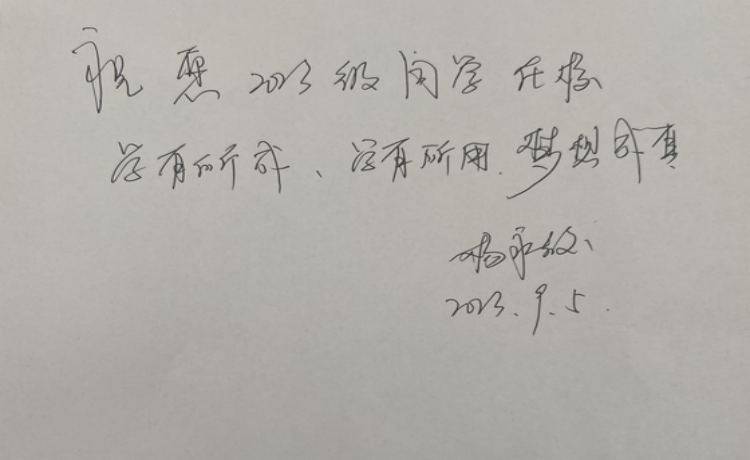 祝愿2023级同学在校
学有所成、学有所用.梦想成真
杨永
2023.9.5.